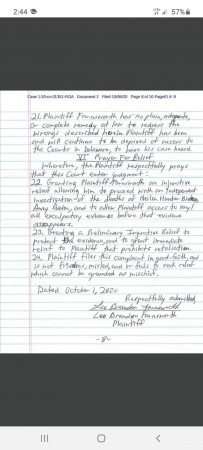 2:44
57%
Case 1:20-cv-01351-RGA Document 2 Filed 10/06/20 Page 8 of 50 PageID #: 9
21. Plaintiff Farnsworth has no plain, adequate,
or complete remedy at law to redress the
wrongs described herein. Plaintiff has been
and will continue to be deprived of access to
the Courts in Delaware, to have his case heard.
VI. Prayer For Relief
Wherefore, the Plaintiff respectfully prays
that this Court enter judgment:
22. Granting Plaintiff Farnsworth an injunctive
relief allowing him to proceed with an Independent
Investigation of the deaths of Hunter Biden,
and to allow Plaintiff access to any/
all exculpatory evidence before that evidence
disappears.
23. Granting a Preliminary Injunctive Relief to
protect the evidence, and to grant immediate
relief to Plaintiff that prohibits retaliation.
24. Plaintiff files this complaint in good-faith, and
is not frivolous, misled, and or fails to seek relief
which cannot be granted or mischief.
Dated October 1, 2020
Respectfully submitted,
Lee Brandon Farnsworth
Lee Brandon Farnsworth
Plaintiff
-8-